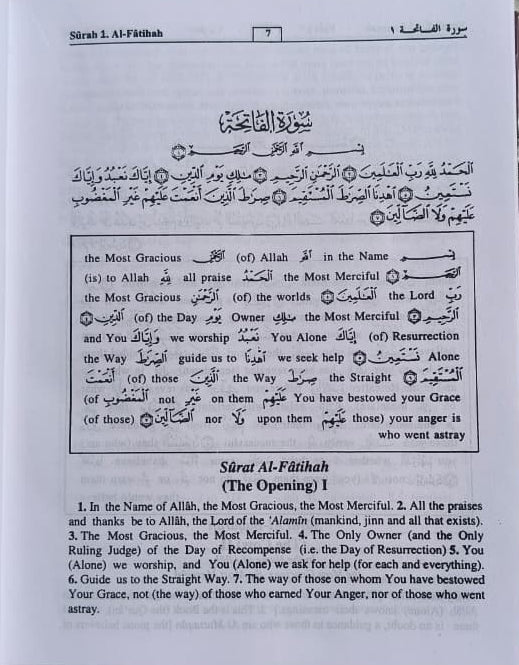 Sûrah 1. Al-Fâtihah 7 سورة الفاتحة ١
سُورَةُ الفَاتِحَة
بِسْمِ ٱللَّهِ ٱلرَّحْمَٰنِ ٱلرَّحِيمِ ١
ٱلْحَمْدُ لِلَّهِ رَبِّ ٱلْعَٰلَمِينَ ٢ ٱلرَّحْمَٰنِ ٱلرَّحِيمِ ٣ مَٰلِكِ يَوْمِ ٱلدِّينِ ٤ إِيَّاكَ نَعْبُدُ وَإِيَّاكَ
نَسْتَعِينُ ٥ ٱهْدِنَا ٱلصِّرَٰطَ ٱلْمُسْتَقِيمَ ٦ صِرَٰطَ ٱلَّذِينَ أَنْعَمْتَ عَلَيْهِمْ غَيْرِ ٱلْمَغْضُوبِ
عَلَيْهِمْ وَلَا ٱلضَّآلِّينَ ٧
بِسْمِ in the Name ٱللَّهِ (of) Allah ٱلرَّحْمَٰنِ the Most Gracious
ٱلرَّحِيمِ ١ the Most Merciful ٱلْحَمْدُ all praise لِلَّهِ (is) to Allah
رَبِّ the Lord ٱلْعَٰلَمِينَ ٢ (of) the worlds ٱلرَّحْمَٰنِ the Most Gracious
ٱلرَّحِيمِ ٣ the Most Merciful مَٰلِكِ Owner يَوْمِ (of) the Day ٱلدِّينِ ٤
(of) Resurrection إِيَّاكَ You Alone نَعْبُدُ we worship وَإِيَّاكَ and You
Alone نَسْتَعِينُ ٥ we seek help ٱهْدِنَا guide us to ٱلصِّرَٰطَ the Way
ٱلْمُسْتَقِيمَ ٦ the Straight صِرَٰطَ the Way ٱلَّذِينَ (of) those أَنْعَمْتَ
You have bestowed your Grace عَلَيْهِمْ on them غَيْرِ not ٱلْمَغْضُوبِ (of
those) your anger is عَلَيْهِمْ upon them وَلَا nor ٱلضَّآلِّينَ ٧ (of those)
who went astray
Sûrat Al-Fâtihah
(The Opening) I
1. In the Name of Allâh, the Most Gracious, the Most Merciful. 2. All the praises
and thanks be to Allâh, the Lord of the 'Alamîn (mankind, jinn and all that exists).
3. The Most Gracious, the Most Merciful. 4. The Only Owner (and the Only
Ruling Judge) of the Day of Recompense (i.e. the Day of Resurrection) 5. You
(Alone) we worship, and You (Alone) we ask for help (for each and everything).
6. Guide us to the Straight Way. 7. The way of those on whom You have bestowed
Your Grace, not (the way) of those who earned Your Anger, nor of those who went
astray.